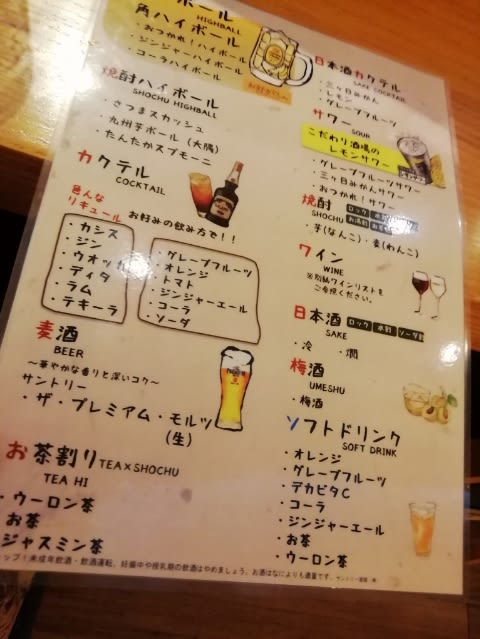 ボール
HIGHBALL
角ハイボール
・おつかれ!ハイボール
・ジンジャーハイボール
・コーラハイボール
お好きQに
焼酎ハイボール
SHOCHU HIGHBALL
・さつまスカッシュ
・九州芋ボール(大隅)
・たんたかスプモーニ
カクテル
COCKTAIL
色んな
リキュール
お好みの飲み方で!!
・カシス
・ジン
・ウオッカ
・ディタ
・ラム
・テキーラ
・グレープフルーツ
・オレンジ
・トマト
・ジンジャーエール
・コーラ
・ソーダ
麦酒
BEER
~華やかな香りと深いコク~
サントリー
・ザ・プレミアム・モルツ
(生)
お茶割りTEA×SHOCHU
TEA HI
・ウーロン茶
お茶
ジャスミン茶
日本酒カクテル
SAKE COCKTAIL
・三ヶ日みかん
・レモン
・グレープフルーツ
サワー
SOUR
こだわり酒場の
レモンサワー
・グレープフルーツサワー
・三ヶ日みかんサワー
・おつかれ!サワー
焼酎
SHOCHU
ロック
水割
お湯割
・芋(なんこ)・麦(わんこ)
ワイン
WINE
※別紙ワインリストを
ご参照ください。
日本酒
SAKE
ロック 水割 ソーダ割
・冷 ・燗
梅酒
UMESHU
・梅酒
ソフトドリンク
SOFT DRINK
・オレンジ
・グレープフルーツ
・デカビタC
・コーラ
・ジンジャーエール
・お茶
・ウーロン茶
ップ!未成年飲酒・飲酒運転。妊娠中や授乳期の飲酒はやめましょう。お酒はなによりも適量です。サントリー酒類(株)